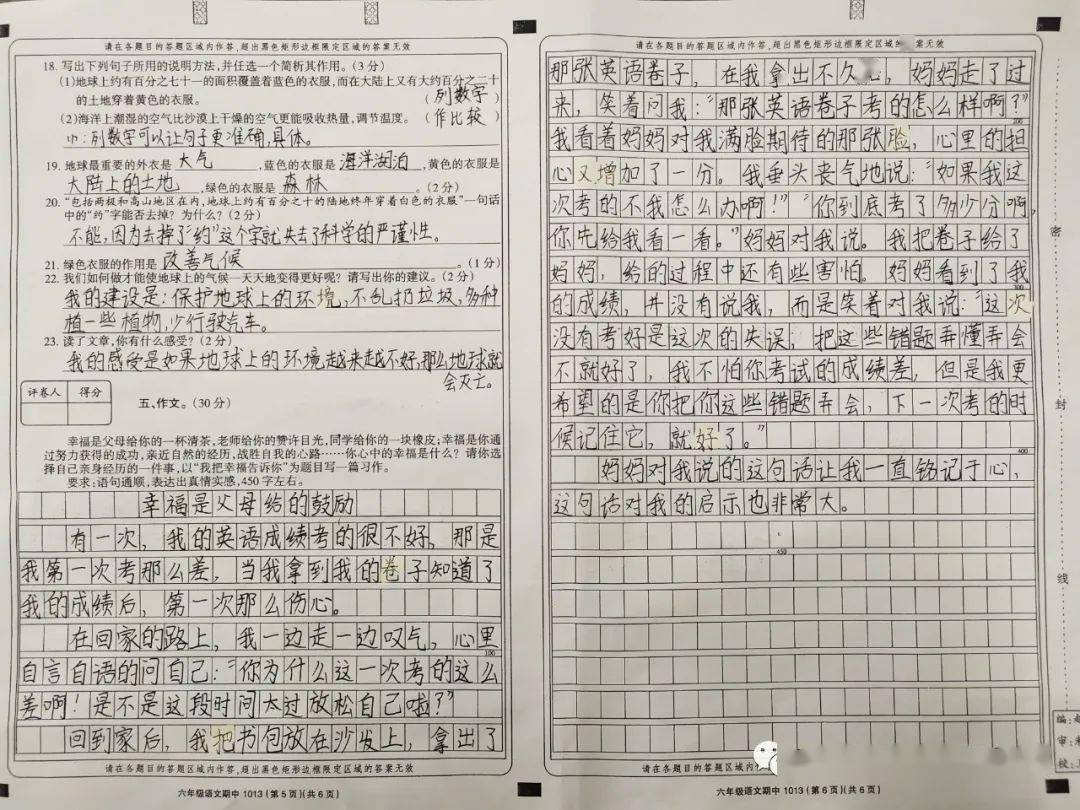 请在各题目的答题区域内作答,超出黑色矩形边框限定区域的答案无效
18. 写出下列句子所用的说明方法,并任选一个简析其作用。(3分)
(1)地球上约有百分之七十一的面积覆盖着蓝色的衣服,而在大陆上又有大约百分之二十
的土地穿着黄色的衣服。 (列数字)
(2)海洋上潮湿的空气比沙漠上干燥的空气更能吸收热量,调节温度。 (作比较)
(1):列数字可以让句子更准确,具体。
19. 地球最重要的外衣是 大气 ,蓝色的衣服是 海洋湖泊 ,黄色的衣服是
大陆上的土地 ,绿色的衣服是 森林 。(2分)
20. “包括两极和高山地区在内,地球上约有百分之十的陆地终年穿着白色的衣服”一句话
中的“约”字能否去掉?为什么?(2分)
不能,因为去掉了“约”这个字就失去了科学的严谨性。
21. 绿色衣服的作用是 改善气候 。(1分)
22. 我们如何做才能使地球上的气候一天天地变得更好呢?请写出你的建议。(2分)
我的建设是:保护地球上的环境,不乱扔垃圾,多种
植一些植物,少行驶汽车。
23. 读了文章,你有什么感受?(2分)
我的感受是如果地球上的环境越来越不好,那么地球就
会灭亡。
评卷人 得分
五、作文。(30分)
幸福是父母给你的一杯清茶,老师给你的赞许目光,同学给你的一块橡皮;幸福是你通
过努力获得的成功,亲近自然的经历,战胜自我的心路……你心中的幸福是什么?请你选
择自己亲身经历的一件事,以“我把幸福告诉你”为题目写一篇习作。
要求:语句通顺,表达出真情实感,450字左右。
幸福是父母给的鼓励
有一次,我的英语成绩考的很不好,那是
我第一次考那么差,当我拿到我的卷子知道了
我的成绩后,第一次那么伤心。
在回家的路上,我一边走一边叹气,心里
100
自言自语的问自己:“你为什么这一次考的这么
差啊!是不是这段时间太过放松自己啦?”
回到家后,我把书包放在沙发上,拿出了
请在各题目的答题区域内作答,超出黑色矩形边框限定区域的答案无效
六年级语文期中 1013(第5页)(共6页)
请在各题目的答题区域内作答,超出黑色矩形边框限定区域的 案无效
那张英语卷子,在我拿出不久 ,妈妈走了过
来,笑着问我:“那张英语卷子考的怎么样啊?”
200
我看着妈妈对我满脸期待的那张脸,心里的担
心又增加了一分。我垂头丧气地说:“如果我这
次考的不我怎么办啊!”“你到底考了多少分啊,
你先给我看一看。”妈妈对我说。我把卷子给了
妈妈,给的过程中还有些害怕。妈妈看到了我
300
的成绩,并没有说我,而是笑着对我说:“这次
没有考好是这次的失误,把这些错题弄懂弄会
不就好了,我不怕你考试的成绩差,但是我更
希望的是你把你这些错题弄会,下一次考的时
候记住它,就好了。”
400
妈妈对我说的这句话让我一直铭记于心,
这句话对我的启示也非常大。
450
密
封
线
请在各题目的答题区域内作答,超出黑色矩形边框限定区域的答案无效
六年级语文期中 1013(第6页)(共6页)
编:
审:
校: